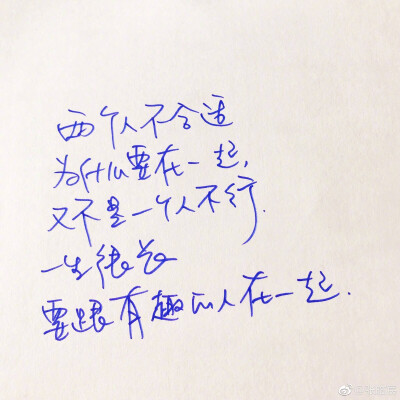 两个人不合适
为什么要在一起,
又不是一个人不行.
一生很长
要跟有趣的人在一起.